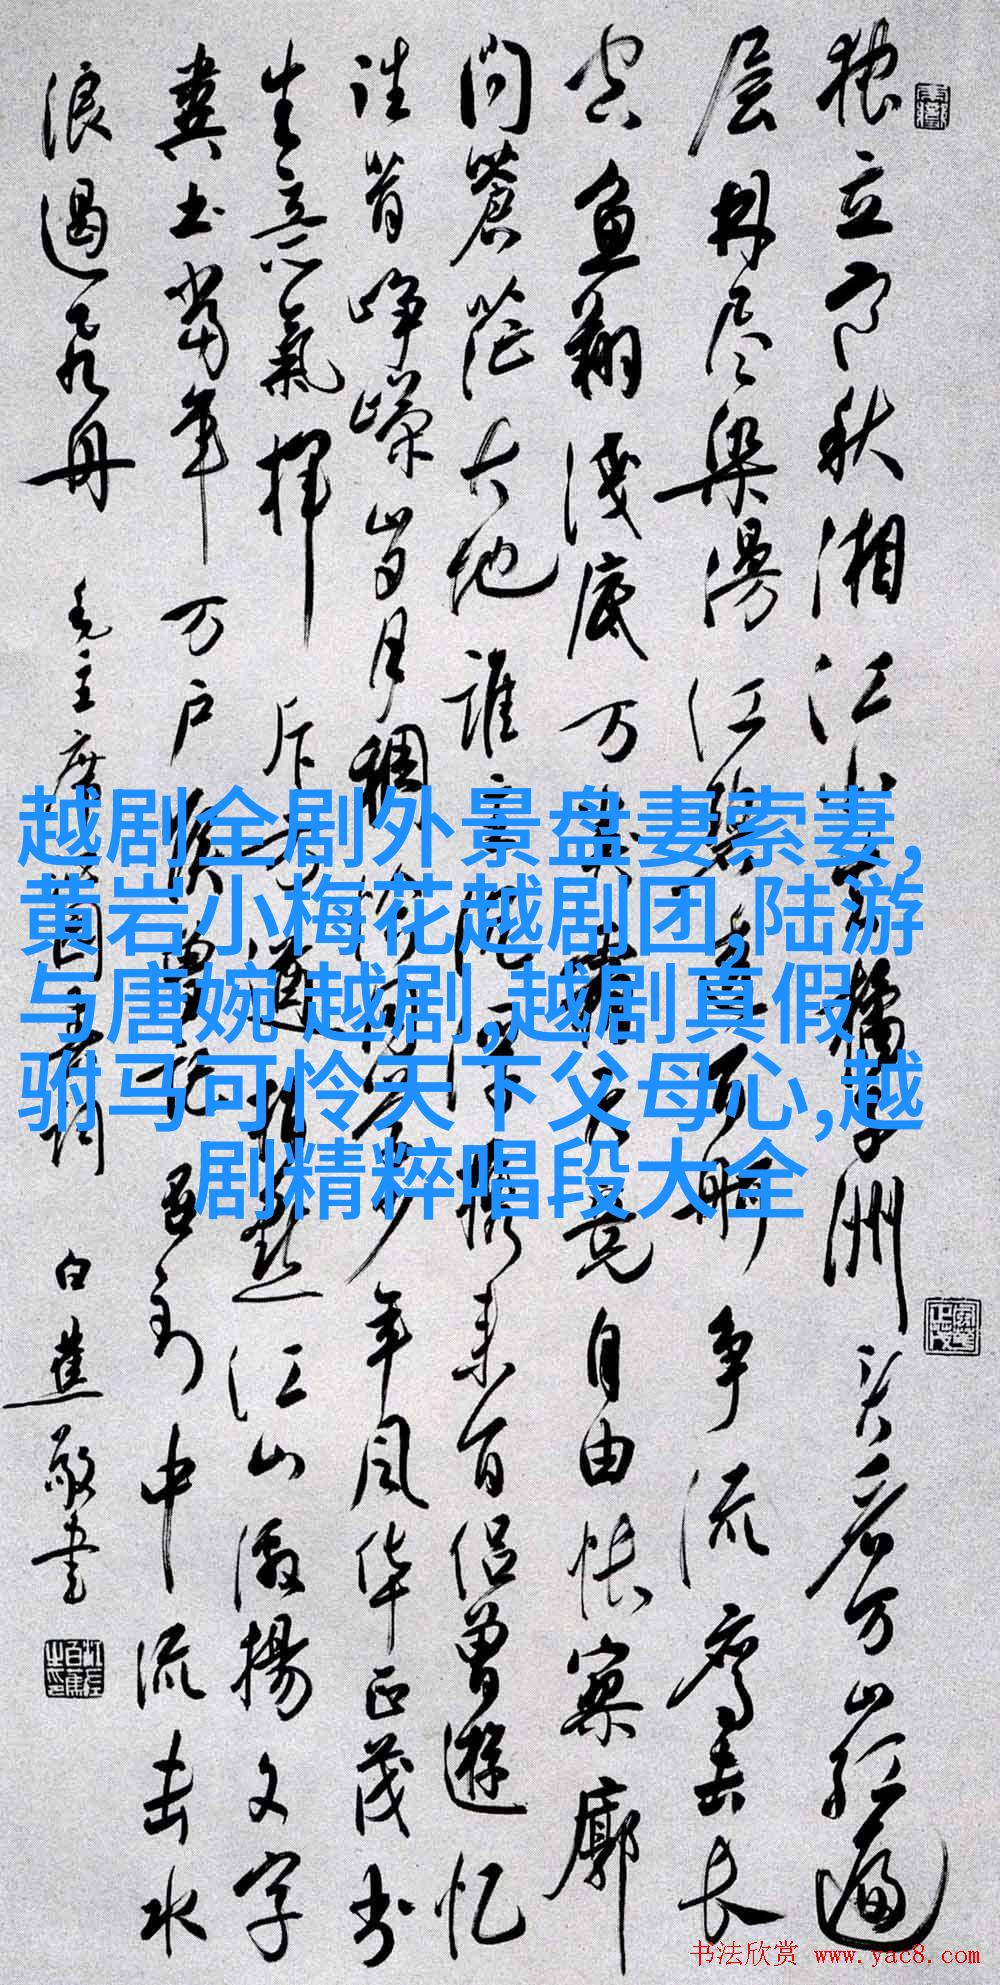 独立寒秋湘江北去橘子洲头看万山红遍
层林尽染漫江碧透百舸争流鹰击长
空鱼翔浅底万类霜天竞自由怅寥廓
问蒼茫大地谁主沉浮携来百侣曾遊忆
往昔峥嵘岁月稠恰同学少年风华正茂书
生意氣挥斥方遒指点江山激揚文字
粪土当年万户侯曾记否到中流击水
浪遏飞舟 毛主席沁园春词 白蕉敬书
越剧全剧外景盘妻索妻,
黄岩小梅花越剧团,陆游
与唐婉 越剧,越剧真假
驸马可怜天下父母心,越
剧精粹唱段大全
书法欣赏 www.yac8.com